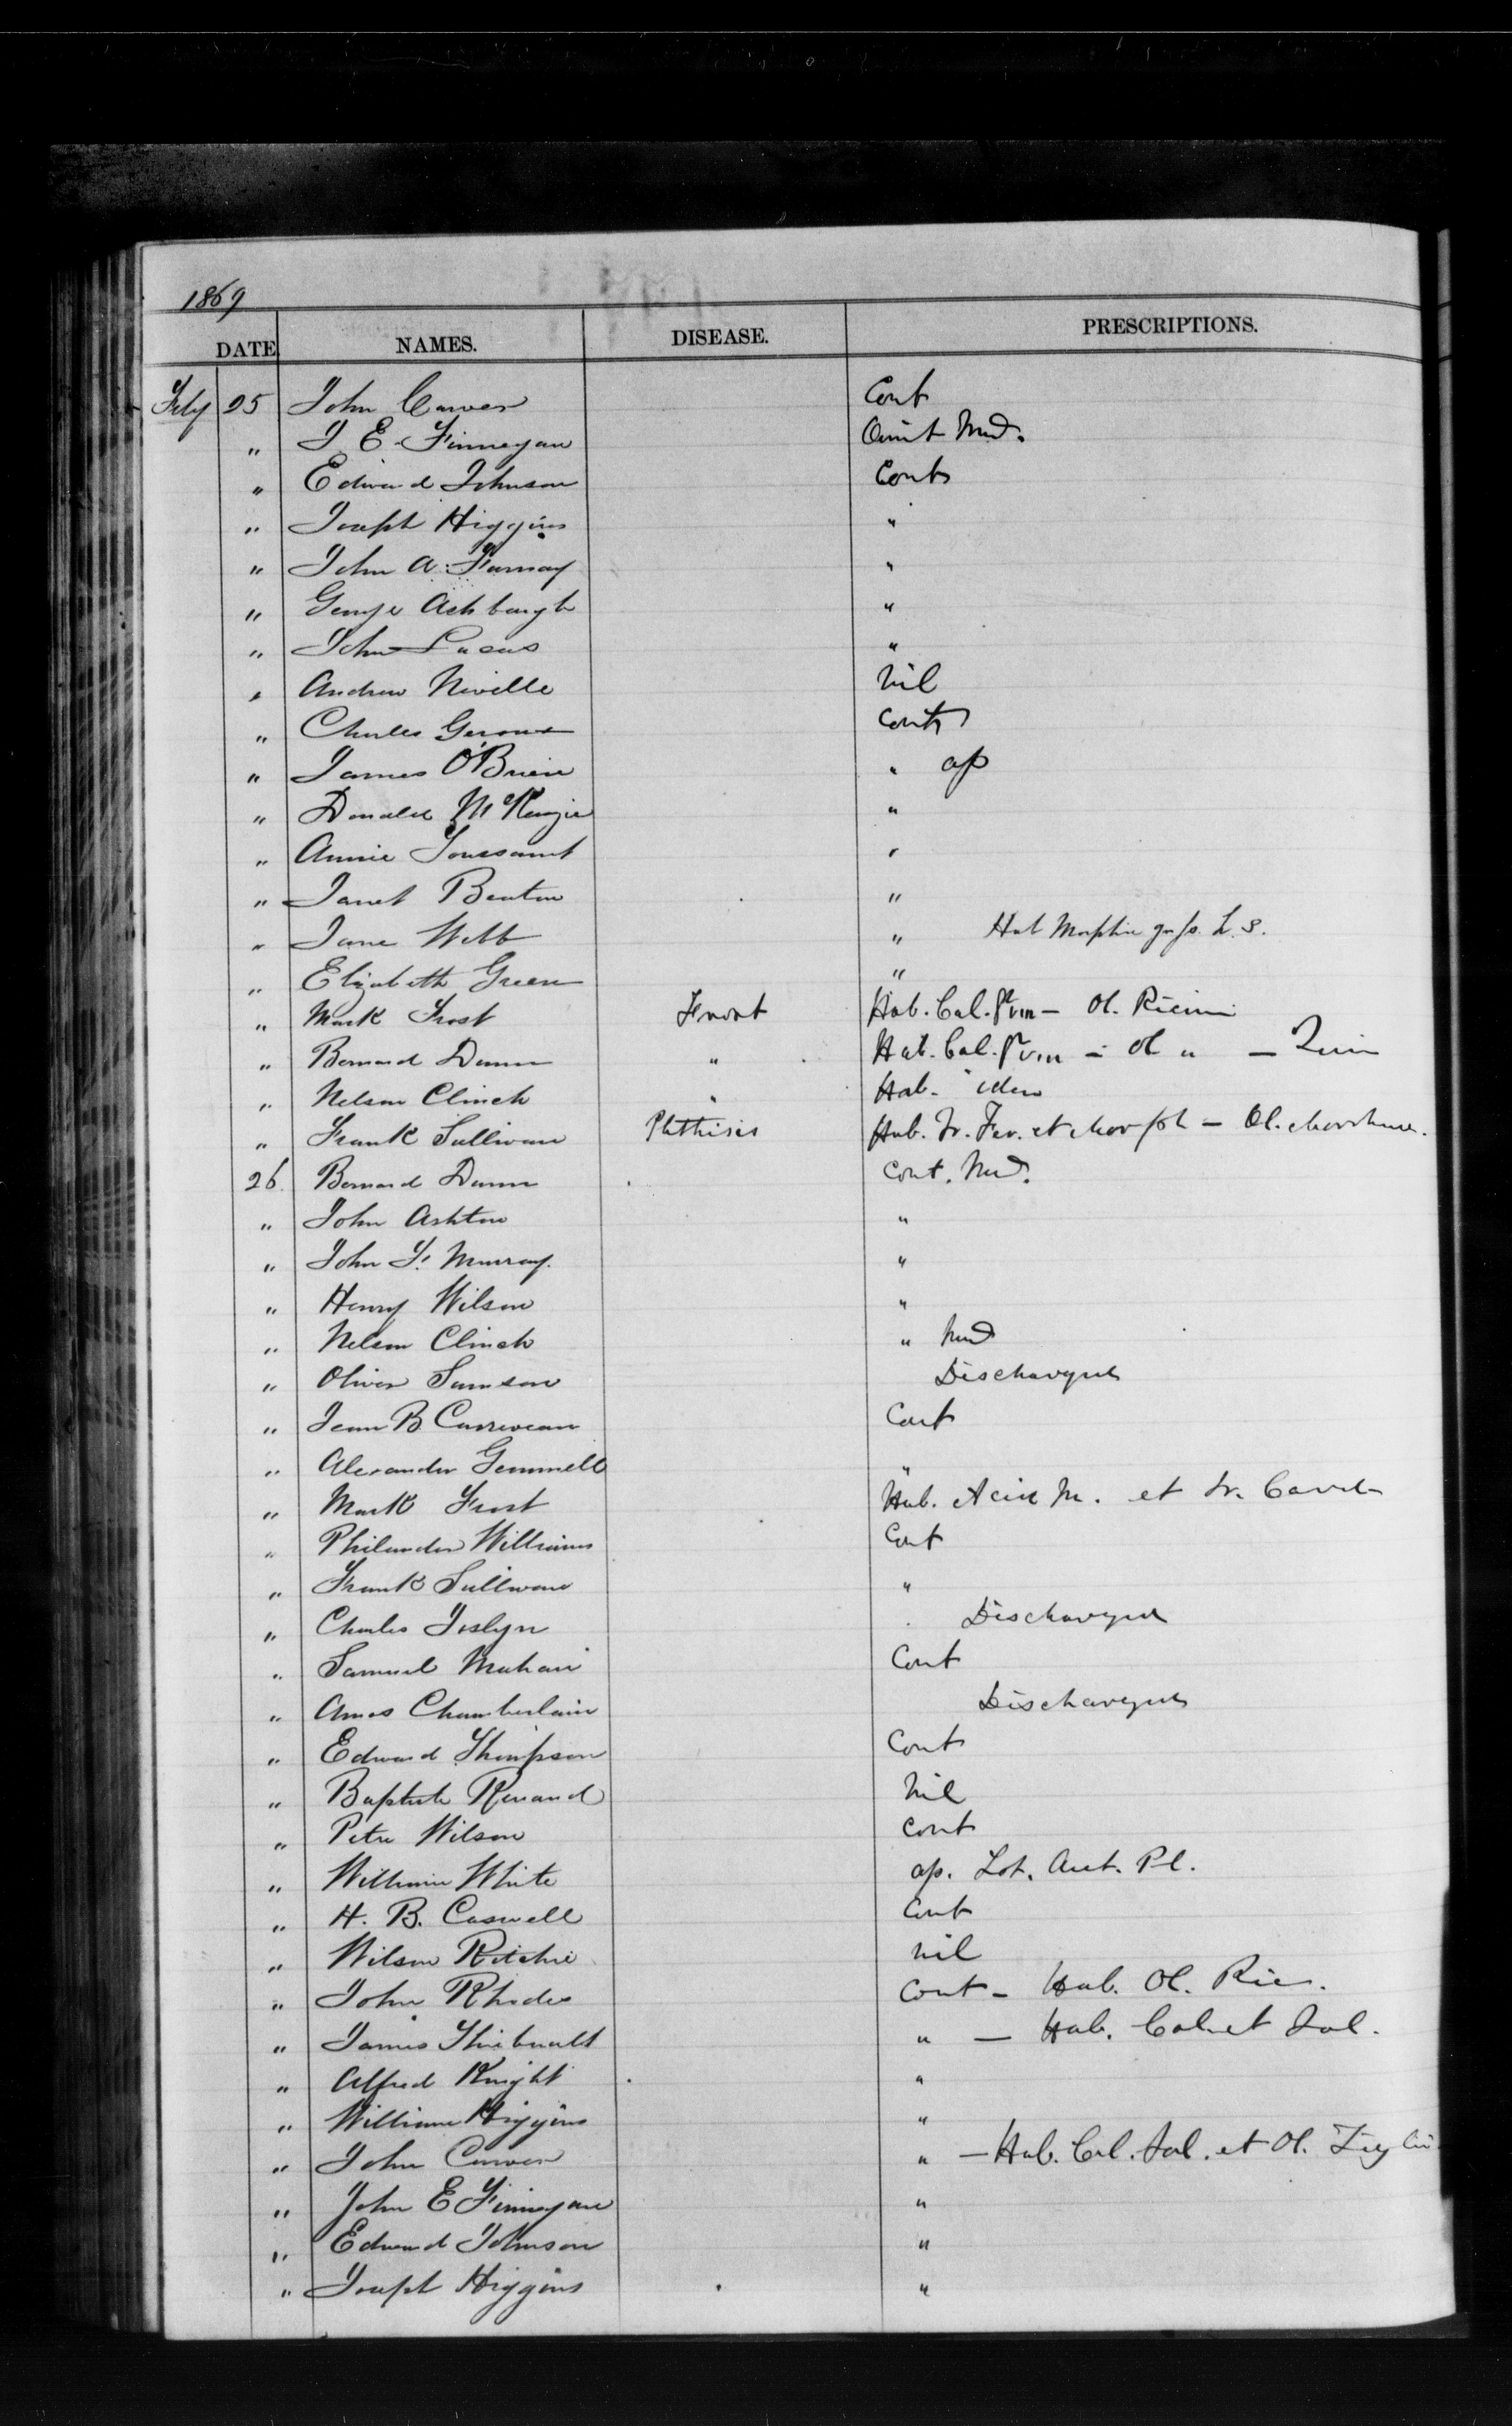 1869
DATE NAMES. DISEASE. PRESCRIPTIONS.
Feby 25 John Carver Cont
" J E Finnegan Omit Med.
" Edward Johnson Cont
" Joseph Higgins "
" John A. "
" George Ashbaugh "
" John Lucas "
" Andrew Neville Nil
" Charles Geroux Cont
" James O'Brien " ap
" Donald McKenzie "
" Annie Toussaint "
" Janet Benton "
" Jane Webb " Hab Morphia
" Elizabeth Green "
" Mark Frost Hab. Cal. gr viii — Ol. Ricini
" Bernard Dunn " Hab. Cal. gr viii — Ol " —
" Nelson Clinch " Hab. idem
" Frank Sullivan Phthisis Hab. Tr. Fer. et Morph — Ol. Morrhuae.
26 Bernard Dunn Cont. Med.
" John Ashton "
" John F. Murray. "
" Henry Wilson "
" Nelson Clinch " Med
" Oliver Samson Discharged
" Jean B Cont
" Alexander Gemmell "
" Mark Frost Hab. Acid M. et Tr. Card
" Philander Williams Cont
" Frank Sullivan "
" Charles Joslyn Discharged
" Samuel Mahan Cont
" Amos Chamberlain Discharged
" Edward Thompson Cont
" Baptiste Renaud Nil
" Peter Wilson Cont
" William White ap. Lot. Pl.
" H. B. Caswell Cont
" Wilson Ritchie nil
" John Rhodes Cont — Hab. Ol. Ric.
" James Thibault " — Hab. Cal et Jal.
" Alfred Knight "
" William Higgins "
" John Carver " — Hab. Cal. Jal. et Ol. Tiglii
" John E Finnegan "
" Edward Johnson "
" Joseph Higgins "